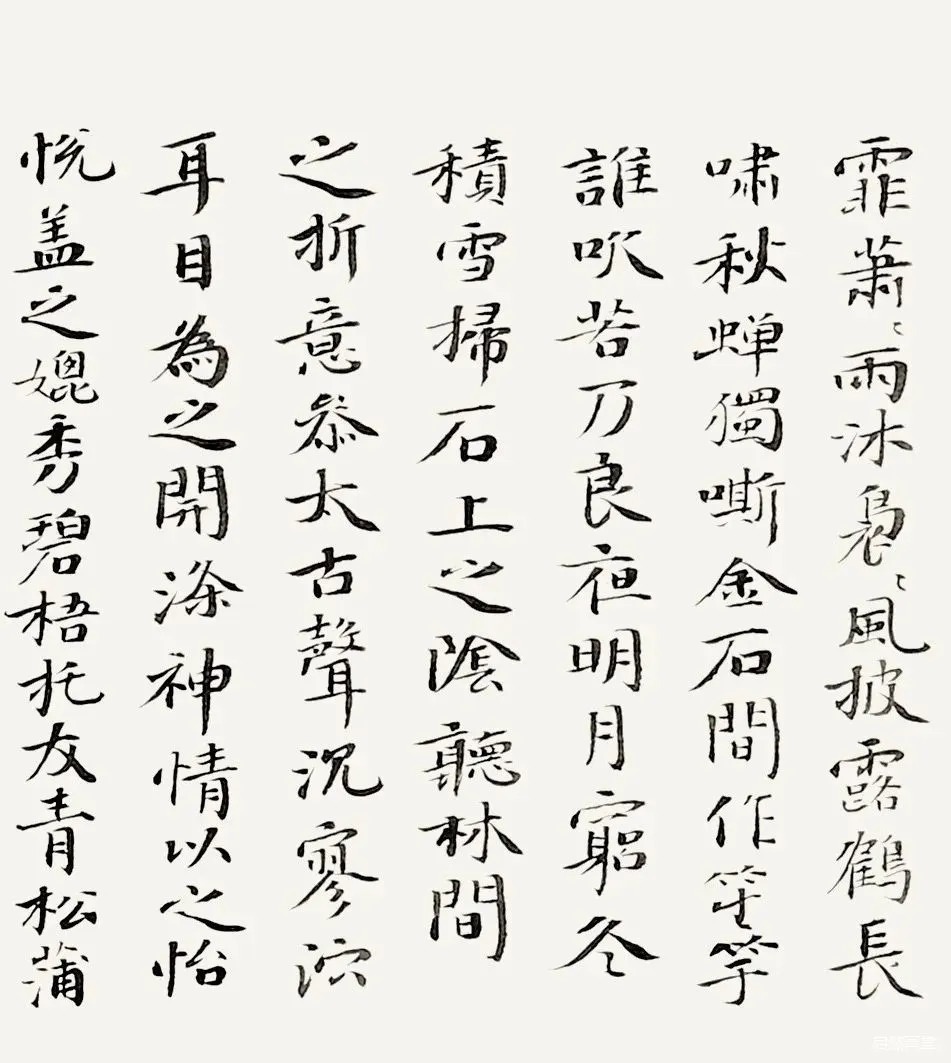 霏蕭〻雨沐裊〻風披露鶴長
嘯秋蟬獨嘶金石間作笙竽
誰吹若乃良夜明月窮冬
積雪掃石上之陰聽林間
之折意叅太古聲沉寥泬
耳目為之開滌神情以之怡
恱盖之媲秀碧梧托友青松蒲